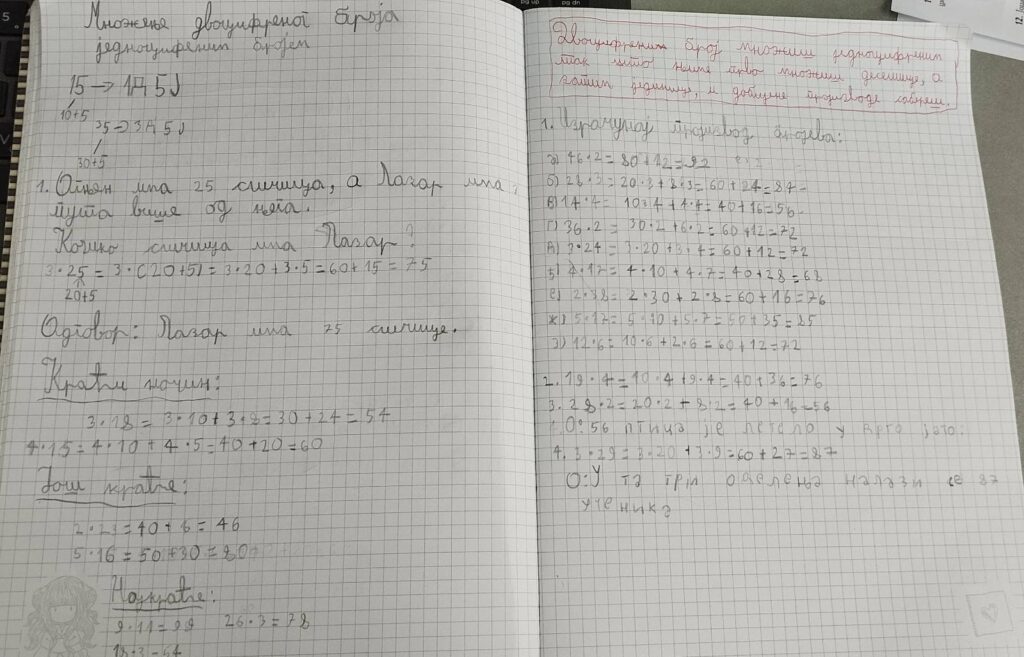 Множење двоцифреног броја
једноцифреним бројем
15 → 1Д 5Ј
10+5
35 → 3Д 5Ј
30+5
1. Огњен има 25 сличица, а Лазар има 3
пута више од њега.
Колико сличица има Лазар?
3·25 = 3·(20+5) = 3·20+3·5 = 60+15 = 75
20+5
Одговор: Лазар има 75 сличице.
Краћи начин:
3·18 = 3·10+3·8 = 30+24 = 54
4·15 = 4·10 + 4·5 = 40+20 = 60
Још краће:
2·23 = 40+6 = 46
5·16 = 50+30 = 80
Најкраће:
9·11 = 99 26·3 = 78
18·3 = 54
Двоцифрени број множиш једноцифреним
тако што њиме прво множиш десетице, а
затим јединице, и добијене производе сабереш.
1. Израчунај производ бројева:
а) 46·2 = 80+12 = 92
б) 28·3 = 20·3+8·3 = 60+24 = 84
в) 14·4 = 10·4+4·4 = 40+16 = 56
г) 36·2 = 30·2+6·2 = 60+12 = 72
д) 3·24 = 3·20+3·4 = 60+12 = 72
ђ) 4·17 = 4·10+4·7 = 40+28 = 68
е) 2·38 = 2·30+2·8 = 60+16 = 76
ж) 5·17 = 5·10+5·7 = 50+35 = 85
з) 12·6 = 10·6+2·6 = 60+12 = 72
2. 19·4 = 10·4+9·4 = 40+36 = 76
3. 28·2 = 20·2+8·2 = 40+16 = 56
О: 56 птица је летело у јато.
4. 3·29 = 3·20+3·9 = 60+27 = 87
О: У та три одељења налази се 87
ученика